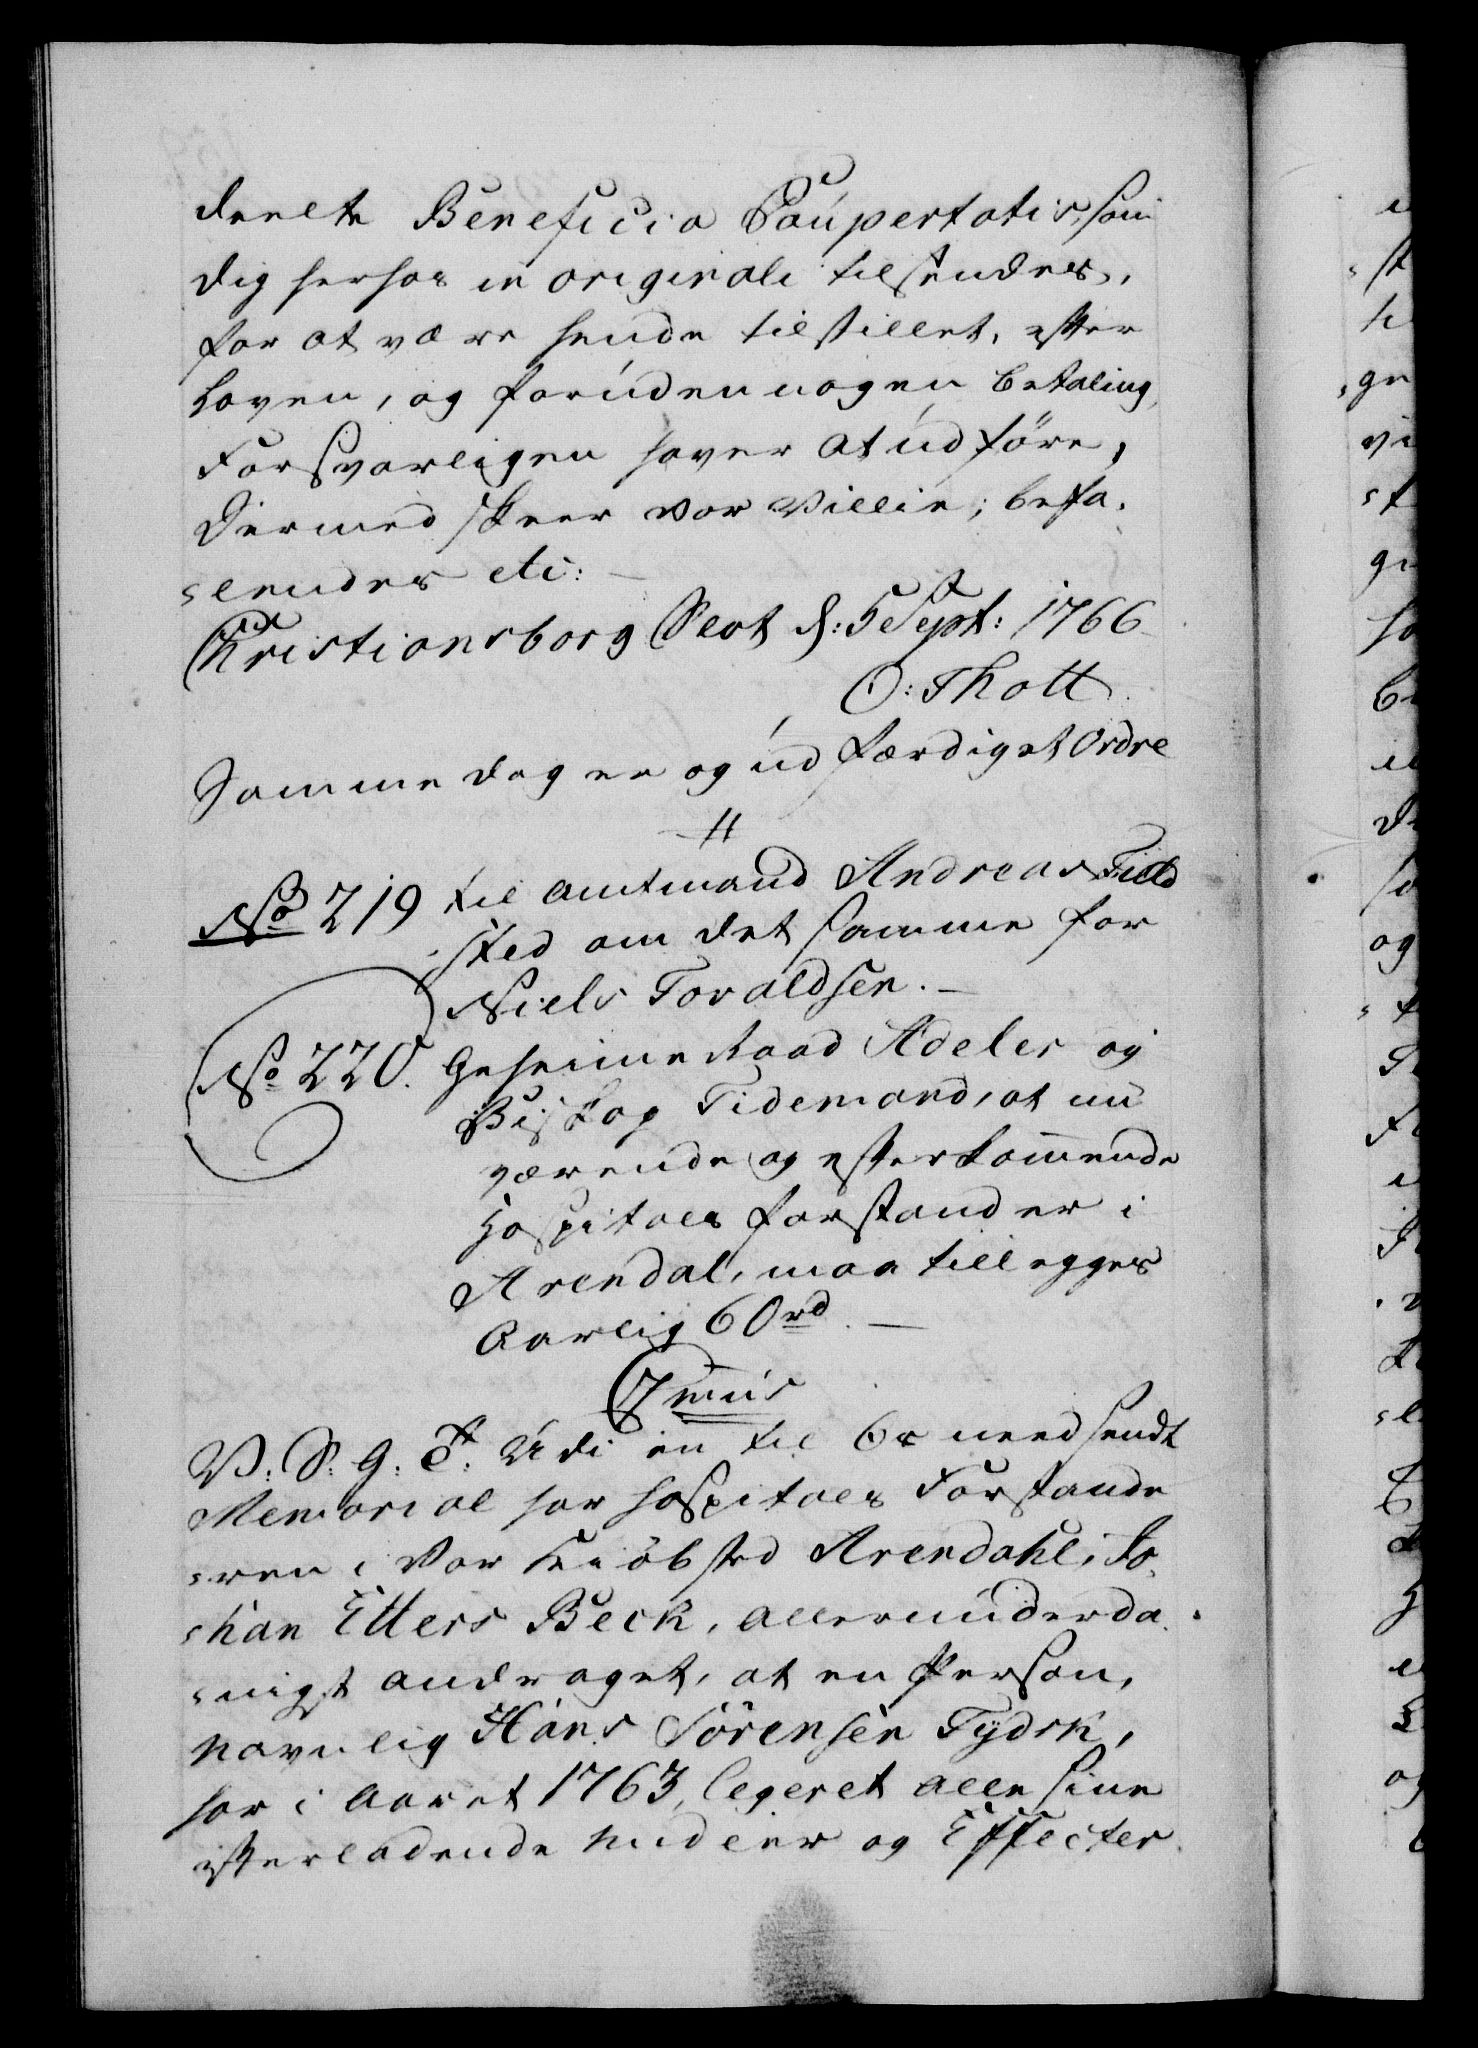 deelte Beneficio Paupertatis, som
dig herhos in originali tilsendes,
for at være hende tilstillet, efter
Loven, og foruden nogen betaling,
Forsvarligen haver at udföre,
Dermed skeer vor Villie; befa-
lendes etc:
Christiansborg Slot d: 5 Sept: 1766
O: Thott.
Samme dag er og udfærdiget Ordre
No 219 til amtmand Andreas Field
sted om det samme for
Niels Toraldsen.
No 220. Geheime Raad Adeler og
Biskop Tidemand, at nu
værende og efterkommende
Hospitals forstander i
Arendal, maa tillegges
Aarlig 60 rd.
C 7mus
V. S. G. T. Udi en til Os needsendt
Memorial har Hospitals Forstande
ren i Vor Kiöbsted Arendahl, Jo-
han Ellers Beck, allerunderda-
nigst andraget, at en Person,
navnlig Hans Sörensen Tydsk,
har i Aaret 1763, legeret alle sine
efterladende Midler og Effecter